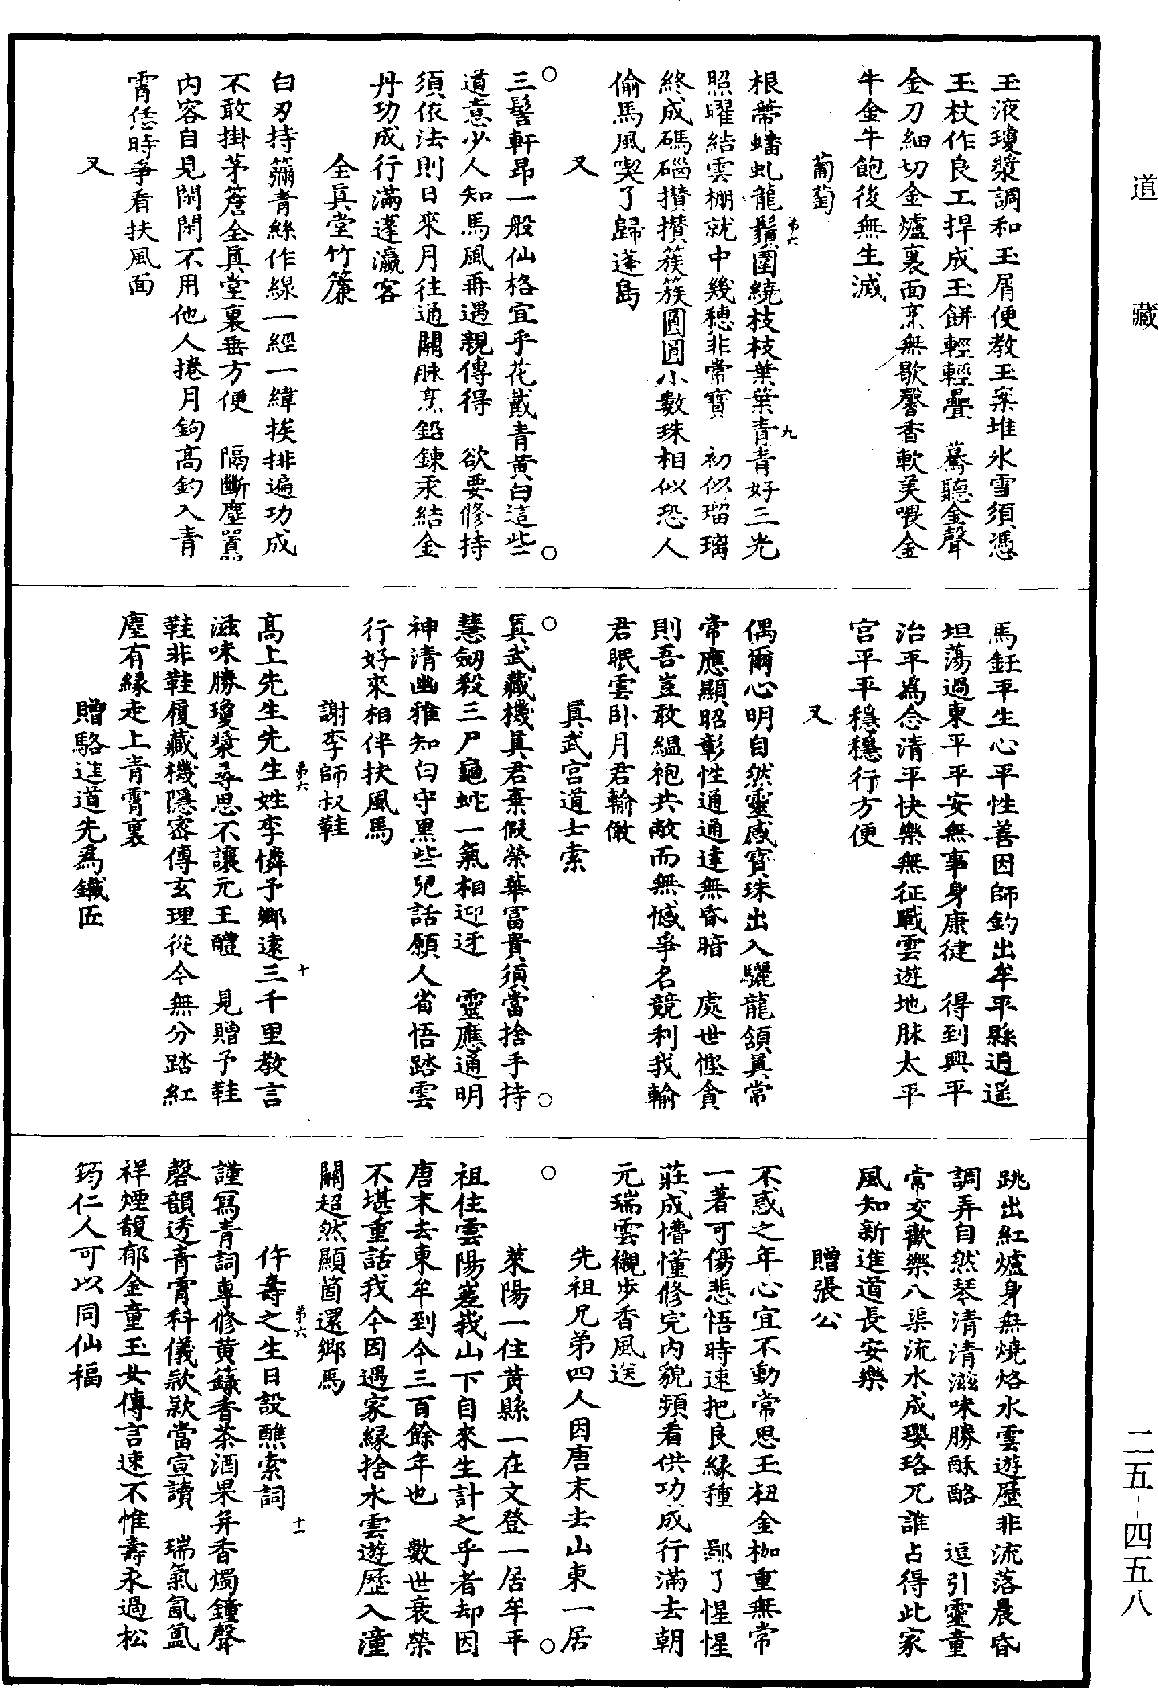 道藏
玉液瓊漿調和玉屑便教玉案堆氷雪須憑
玉杖作良工捍成玉餅輕輕疊　驀聽金聲
金刀細切金爐裏面烹無歇馨香軟美喂金
牛金牛飽後無生滅
葡萄
根蔕蟠虬龍鬚圍繞枝枝葉葉青青好三光
照曜結雲棚就中幾穗非常寶　初似瑠璃
終成碼碯攢攢簇簇圓圓小數珠相似恐人
偷馬風喫了歸蓬島
又
三髻軒昂一般仙格宜乎花戴青黄白這些
道意少人知馬風再遇親傳得　欲要修持
須依法則日來月往通關脉烹鉛鍊汞結金
丹功成行滿蓬瀛客
全眞堂竹簾
白刃持篛青絲作線一經一緯挨排遍功成
不敢掛茅簷全眞堂裏垂方便　隔斷塵囂
内容自見閑閑不用他人捲月鉤高釣入青
霄恁時爭看扶風面
又
馬鈺平生心平性善因師釣出牟平縣逍遥
坦蕩過東平平安無事身康健　得到興平
治平爲念清平快樂無征戰雲遊地脉太平
宫平平穩穩行方便
又
偶爾心明自然靈感寶珠出入驪龍頷眞常
常應顯昭彰性通通達無昏暗　處世慳貪
則吾豈敢緼袍共敝而無憾爭名競利我輸
君眠雲卧月君輸俺
眞武宫道士索
眞武藏機眞君棄假榮華富貴須當捨手持
慧劒殺三尸龜虵一氣相迎迓　靈應通明
神清幽雅知白守黑些兒話願人省悟踏雲
行好來相伴扶風馬
謝李師叔鞋
高上先生先生姓李憐予鄉遠三千里教言
滋味勝瓊漿尋思不讓元王醴　見贈予鞋
鞋非鞋履藏機隱密傳玄理從今無分踏紅
塵有緣走上青霄裏
贈駱進道先爲鐵匠
跳出紅爐身無燒烙水雲遊歷非流落晨昏
調弄自然琴清清滋味勝酥酪　逗引靈童
常交歡樂八渠流水成瓔珞兀誰占得此家
風知新進道長安樂
贈張公
不惑之年心宜不動常思玉杻金枷重無常
一著可傷悲悟時速把良緣種　鄙了惺惺
莊成懵懂修完内貌頻看供功成行滿去朝
元瑞雲襯步香風送
先祖兄弟四人因唐末去山東一居
萊陽一住黄縣一在文登一居牟平
祖住雲陽嵳峩山下自來生計之乎者却因
唐末去東牟到今三百餘年也　數世衰榮
不堪重話我今因遇家緣捨水雲遊歷入潼
關超然顯箇還鄉馬
仵壽之生日設醮索詞
謹寫青詞專修黄籙香茶酒果并香燭鐘聲
磬韻透青霄科儀款款當宣讀　瑞氣氤氲
祥煙馥郁金童玉女傳言速不惟壽永過松
筠仁人可以同仙福
第六　九
第六　十
第六　十一
二五-四五八